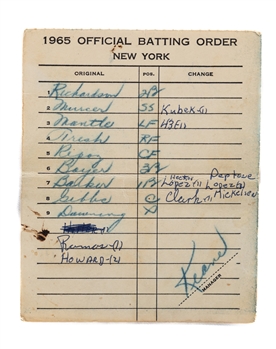 1965 OFFICIAL BATTING ORDER
NEW YORK
ORIGINAL POS. CHANGE
1 Richardson 2B
2 Murcer SS Kubek-11
3 Mantle LF
4 Tresh RF
5 Pepy CF
6 Boyer 3B
7 Barker 1B Hector Lopez-11 Pepitone Lopez
8 Gibbs C Clark-11 Mickelson
9 Downing
Ramos-(1)
HOWARD-(2)
Keane
MANAGER